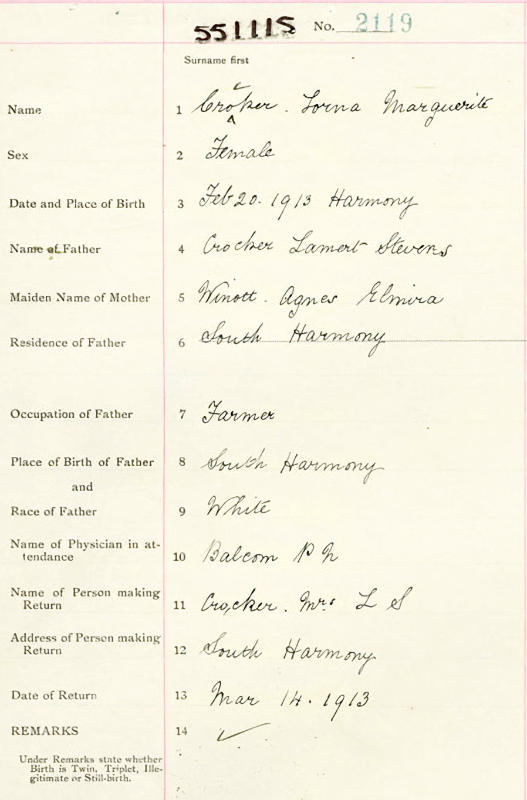 551115 No. 2119
Surname first
Name 1 Croker. Lorna Marguerite
Sex 2 Female
Date and Place of Birth 3 Feb 20. 1913 Harmony
Name of Father 4 Crocker Lamert Stevens
Maiden Name of Mother 5 Winott. Agnes Elmira
Residence of Father 6 South Harmony
Occupation of Father 7 Farmer
Place of Birth of Father 8 South Harmony
and
Race of Father 9 White
Name of Physician in at-
tendance 10 Balcom P N
Name of Person making
Return 11 Crocker. Mrs L S
Address of Person making
Return 12 South Harmony
Date of Return 13 Mar 14. 1913
REMARKS 14 ✓
Under Remarks state whether
Birth is Twin, Triplet, Ille-
gitimate or Still-birth.